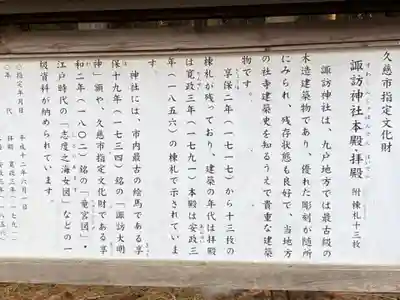 久慈市指定文化財
すわじんじゃほんでん はいでん
諏訪神社本殿・拝殿 附 棟札十三枚
諏訪神社は、九戸地方では最古級の
木造建築物であり、優れた彫刻が随所
にみられ、残存状態も良好で、当地方
の社寺建築史を知るうえで貴重な建築
物です。
享保二年(一七一七)から十三枚の
棟札が残っており、建築の年代は拝殿
は寛政三年(一七九一)本殿は安政三
年(一八五六)の棟札で示されていま
す。
神社には、市内最古の絵馬である享
保十九年(一七三四)銘の「諏訪大明
神」額や、久慈市指定文化財である享
和二年(一八〇二)銘の「竜宮図」・
江戸時代の「志度之海女図」などの一
級資料が納められています。
○指定年月日 平成十二年六月一日
○年 代 拝殿 寛政三年(一七九一)